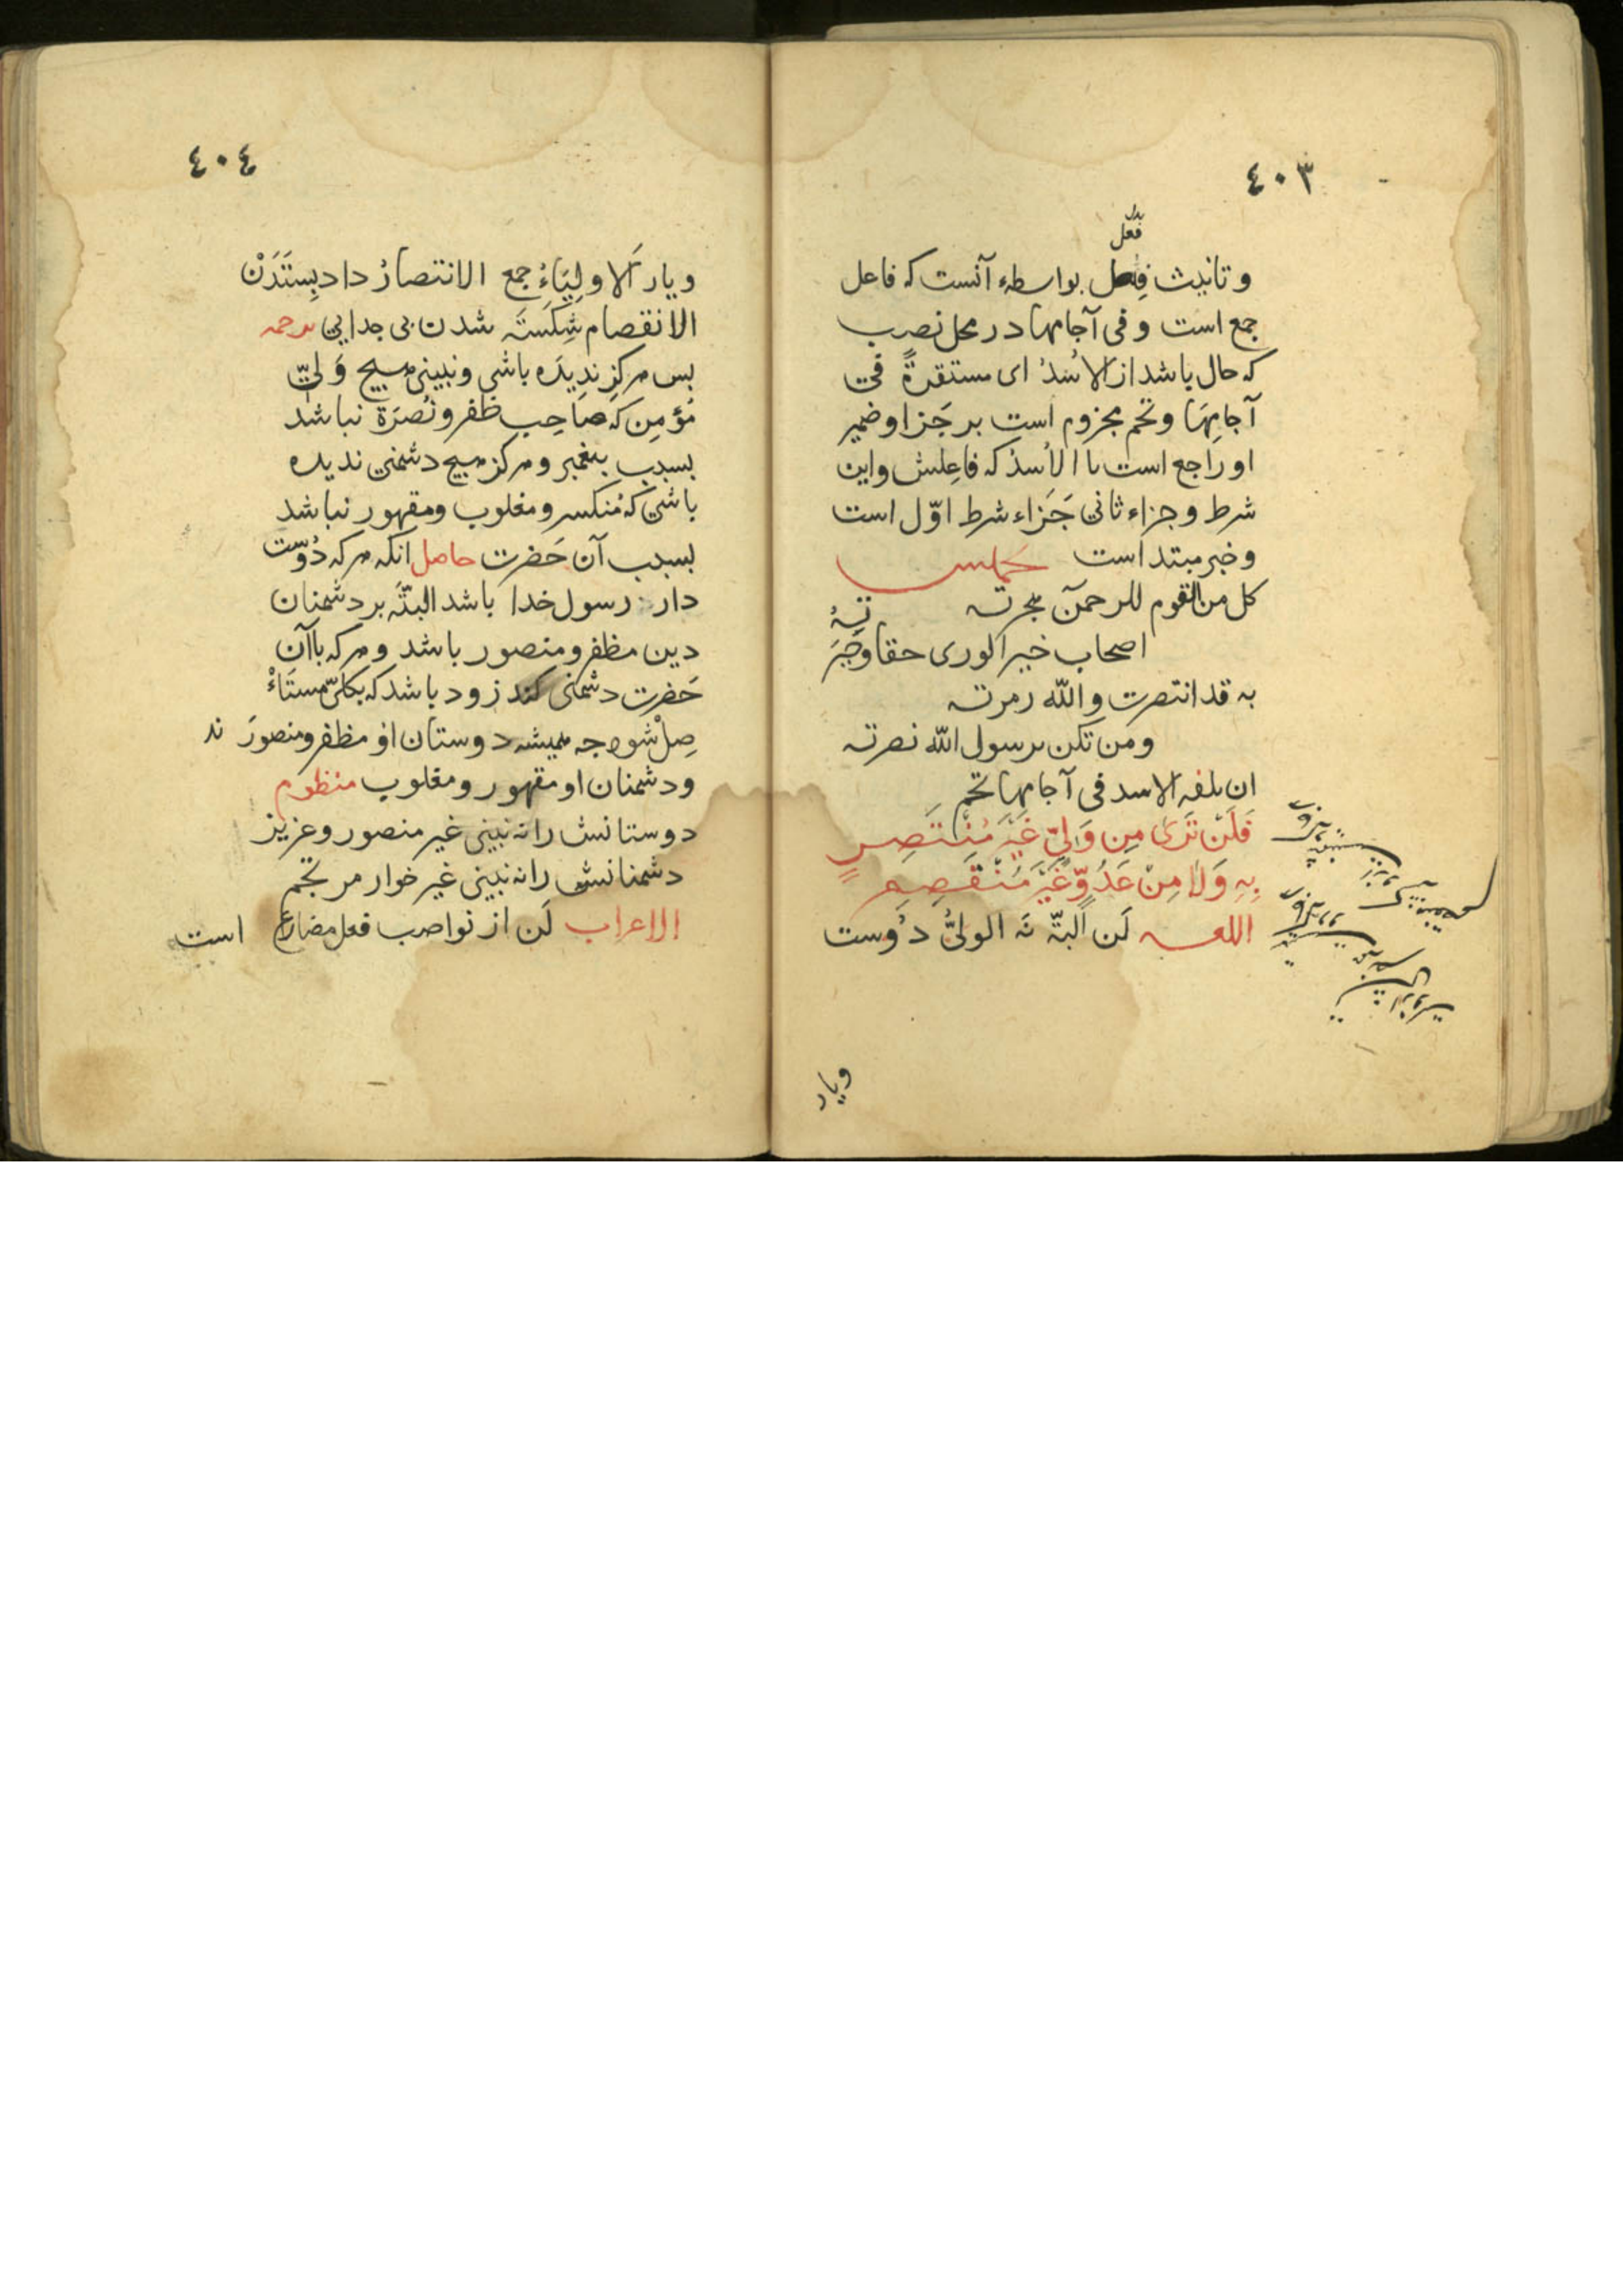 ٤٠٣
بدل
فعل
وتانيث فعل بواسطهء آنست که فاعل
جمع است وفى آجامها در محل نصب
که حال باشد از الاُسْدُ اى مستقرةً فى
آجامِهَا وتجم مجزوم است بر جَزا وضمير
او راجع است با الاُسدُ که فاعِلش واين
شرط وجزاء ثانى جَزاء شرط اوّل است
وخبر مبتدا است
کل من القوم للرحمن هجرته
اصحاب خير الورى حقا وخِيَرَتهُ
به قد انتصرت والله زمرته
ومن تکن برسول الله نصرته
ان تلقه الاسد فى آجامِها تجم
فَلَنْ تَرَى مِن وَلِىٍّ غَيْرَ مُنْتَصِرٍ
بِهِ وَلَا مِنْ عَدُوٍّ غَيْرَ مُنْقَصِمِ
اللغه لَن اَلبتّه نَه الولىُّ دُوست
وياد
٤٠٤
ويار اَلاولِيَاءُ جمع الانتصارُ داد بِستَدَنْ
الانقصام شِکَستَه شدن بى جدايى ترجمه
بس هرکز نديده باشى ونبينى هيچ وَلىّ
مؤمِن که صَاحِب ظفر ونُصرَة نباشد
بسبب پيغمبر وهرکز هيچ دشمنى نديده
باشى که مُنکسر ومغلوب ومقهور نباشد
بسبب آن حَضرت حاصل انکه هرکه دُوست
دار رسول خدا باشد البتّه بر دشمنان
دين مظفر ومنصور باشد وهرکه باآن
حَضرت دشمنى کند زود باشد که بکلّى مستَاْ
صِلْ شود چه هميشه دوستان او مظفر ومنصورَند
ودشمنان او مقهور ومغلوب منظوم
دوستانش را نه بينى غير منصور وعزيز
دشمنانش را نه بينى غير خوار مرتجم
الاعراب لَن از نواصب فعل مضارع است